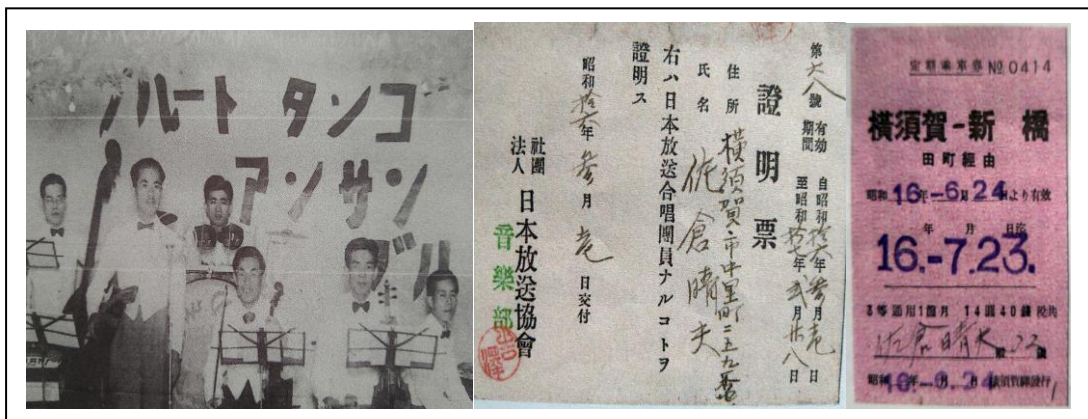 ノルート タンコ
アンサンブル
第六八號 有効期間 自昭和拾六年参月壱日
至昭和拾七年弐月廿八日
證明票
住所 横須賀市中里町三五九番
氏名 佐倉晴夫
右ハ日本放送合唱團員ナルコトヲ
證明ス
昭和拾六年参月壱日交付
社團法人 日本放送協會
音樂部
定期乗車券 №0414
横須賀-新橋
田町経由
昭和16年-6月24日より有效
年 月 日迄
16.-7.23.
3等通用1箇月 14圓40錢 税共
佐倉晴夫殿 22歳
昭和16年-6月24日横須賀驛發行